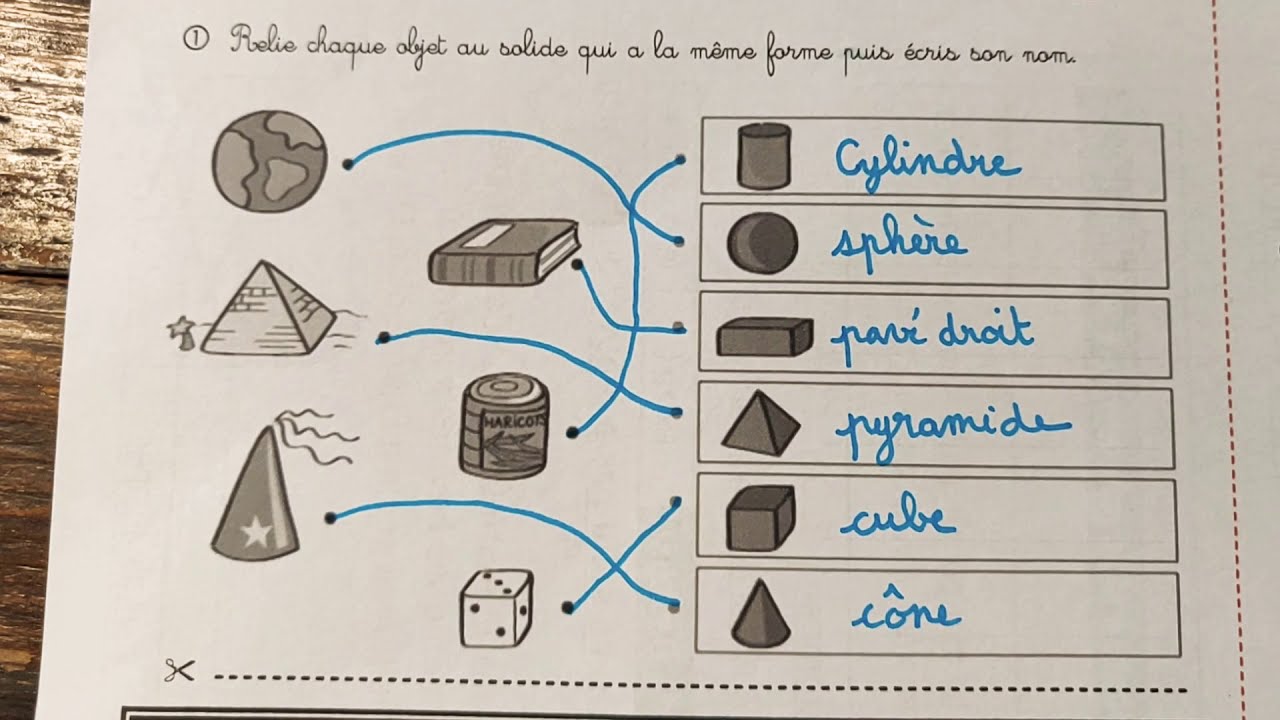 ① Relie chaque objet au solide qui a la même forme puis écris son nom.
Cylindre
sphère
pavé droit
HARICOTS
pyramide
cube
cône